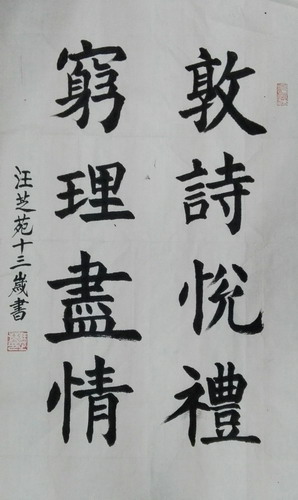 敦詩悅禮
窮理盡情
汪芝苑十三歲書